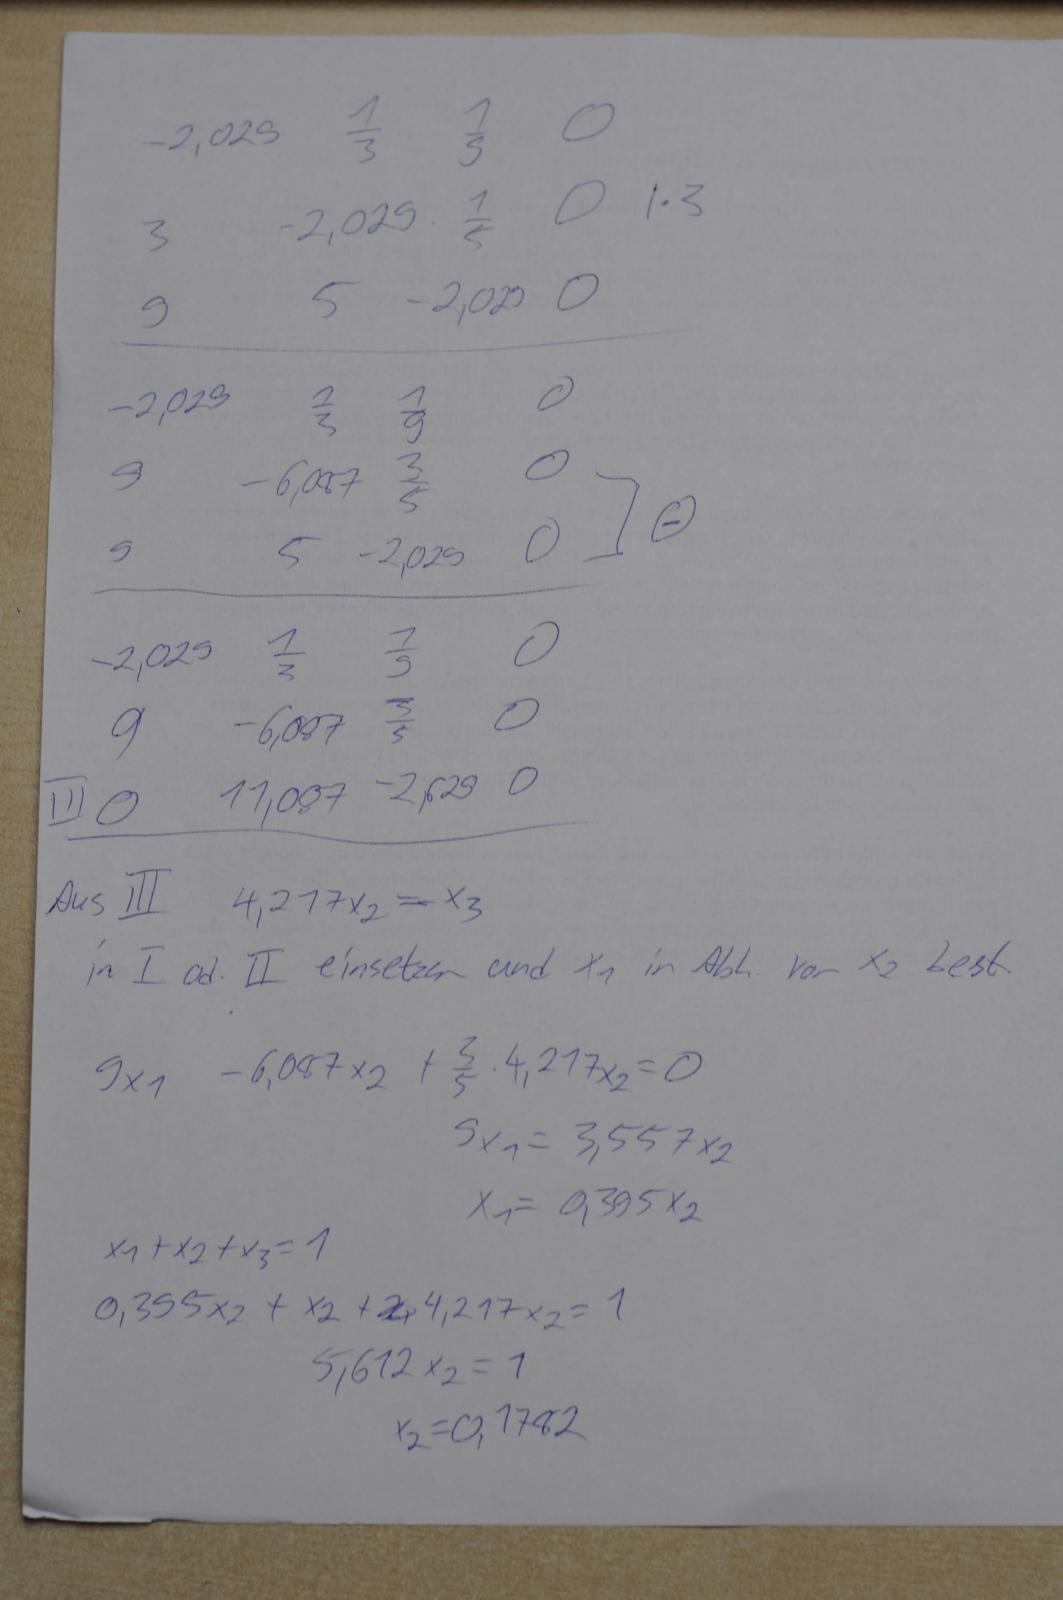 -2,029 1/3 1/9 0
3 -2,029 1/5 0 |·3
9 5 -2,029 0
-2,029 1/3 1/9 0
9 -6,087 3/5 0
9 5 -2,029 0 ⊖
-2,029 1/3 1/9 0
9 -6,087 3/5 0
III 0 11,087 -2,629 0
Aus III 4,217x2 = x3
in I od. II einsetzen und x1 in Abh. von x2 best.
9x1 -6,087x2 + 3/5 · 4,217x2 = 0
9x1 = 3,557x2
x1 = 0,395x2
x1 + x2 + x3 = 1
0,395x2 + x2 + 4,217x2 = 1
5,612x2 = 1
x2 = 0,1782